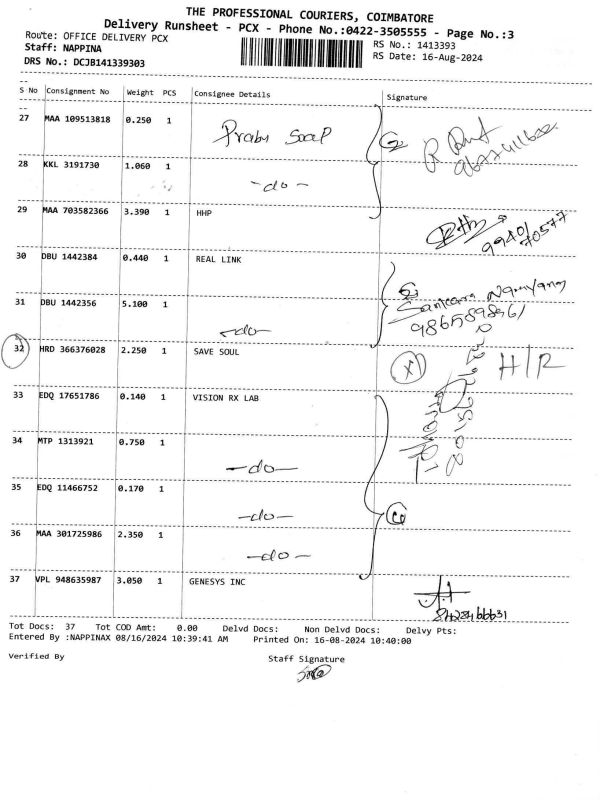 THE PROFESSIONAL COURIERS, COIMBATORE
Delivery Runsheet - PCX - Phone No.:0422-3505555 - Page No.:3
Route: OFFICE DELIVERY PCX
RS No.: 1413393
Staff: NAPPINA
RS Date: 16-Aug-2024
DRS No.: DCJB141339303
S No Consignment No Weight PCS Consignee Details Signature
27 MAA 109513818 0.250 1 Prabu Soap
28 KKL 3191730 1.060 1 -do-
29 MAA 703582366 3.390 1 HHP
9940170577
30 DBU 1442384 0.440 1 REAL LINK
31 DBU 1442356 5.100 1 -do-
32 HRD 366376028 2.250 1 SAVE SOUL X H/R
33 EDQ 17651786 0.140 1 VISION RX LAB
34 MTP 1313921 0.750 1 -do-
35 EDQ 11466752 0.170 1 -do-
36 MAA 301725986 2.350 1 -do-
37 VPL 948635987 3.050 1 GENESYS INC
Tot Docs: 37 Tot COD Amt: 0.00 Delvd Docs: Non Delvd Docs: Delvy Pts:
Entered By :NAPPINAX 08/16/2024 10:39:41 AM Printed On: 16-08-2024 10:40:00
Verified By Staff Signature